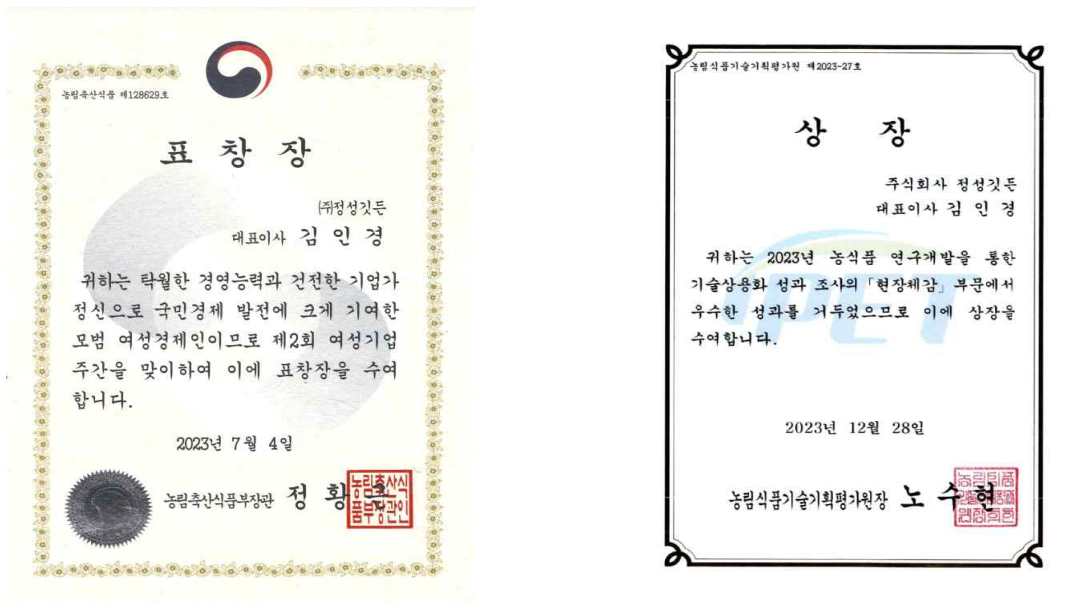 농림축산식품 제128629호
표 창 장
㈜정성깃든
대표이사 김 인 경
귀하는 탁월한 경영능력과 건전한 기업가
정신으로 국민경제 발전에 크게 기여한
모범 여성경제인이므로 제2회 여성기업
주간을 맞이하여 이에 표창장을 수여
합니다.
2023년 7월 4일
농림축산식품부장관 정 황
농림축산식
품부장관인
농림식품기술기획평가원 제2023-27호
상 장
주식회사 정성깃든
대표이사 김 인 경
귀하는 2023년 농식품 연구개발을 통한
기술상용화 성과 조사의 「현장체감」 부문에서
우수한 성과를 거두었으므로 이에 상장을
수여합니다.
iPET
2023년 12월 28일
농림식품기술기획평가원장 노 수 현